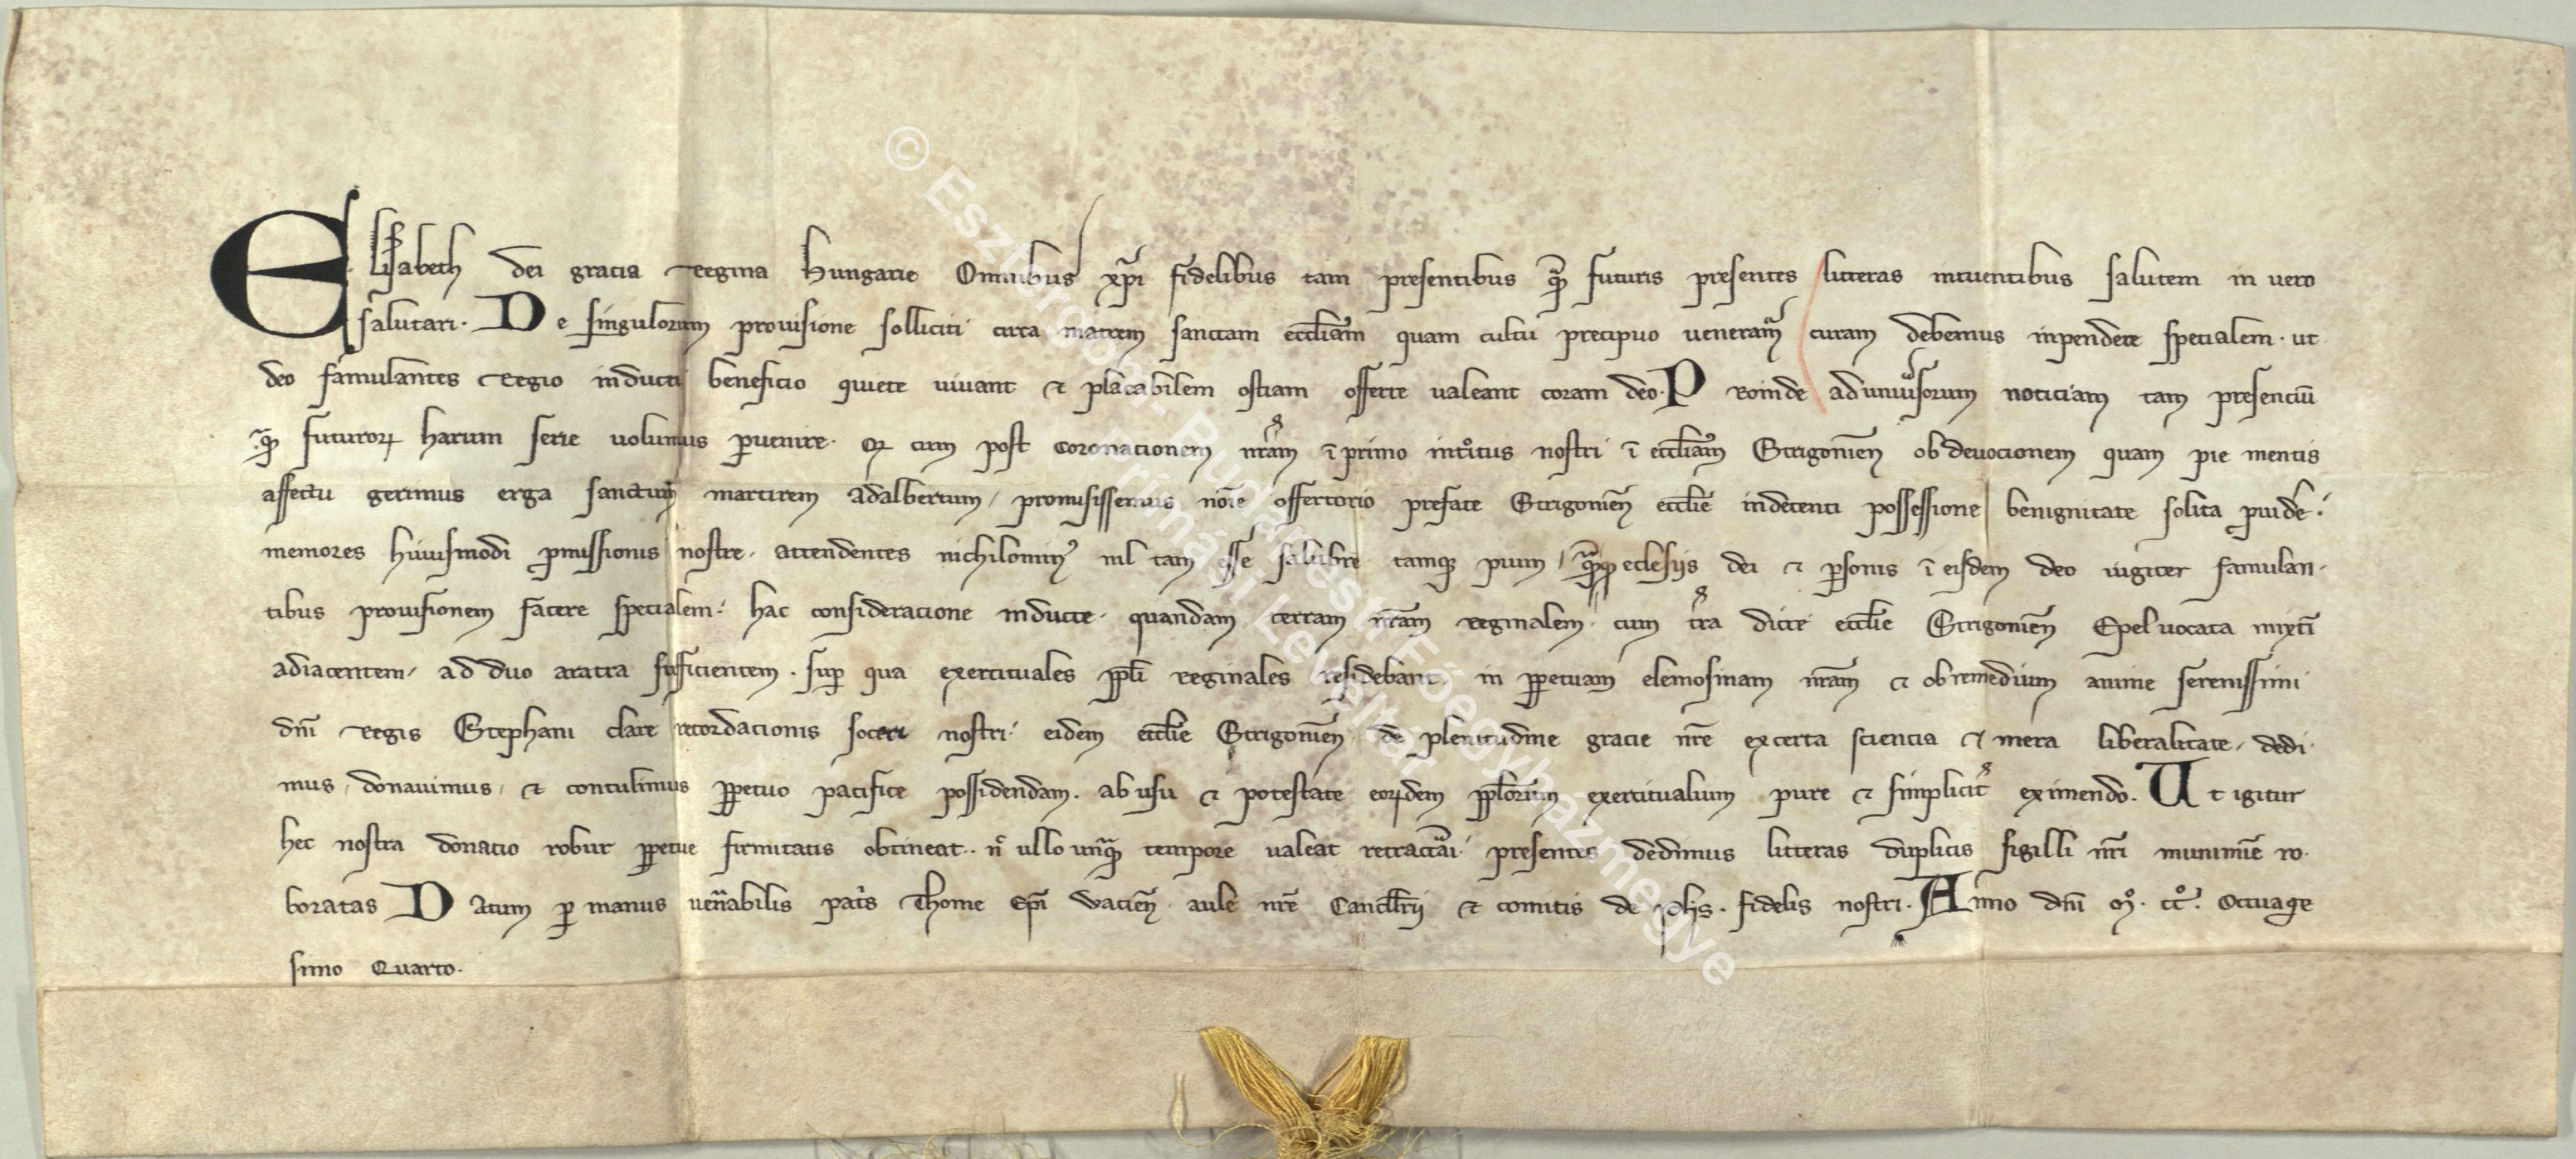 Elisabeth dei gracia Regina Hungarie Omnibus xp̄i fidelibus tam presentibus q̄m futuris presentes litteras intuentibus salutem in uero
salutari. De singulorum prouisione solliciti circa matrem sanctam eccl̄iam quam cultu precipuo ueneram̄ curam debemus inpendere specialem. ut
deo famulantes Regio inducti beneficio quiete uiuant et placabilem ostiam offerre ualeant coram deo. Proinde ad uniu̾sorum noticiam tam presenciū
q̄m futuroꝝ harum serie uolumus ꝑuenire. qꝫ cum post coronacionem nr̄am ī primo int̊itus nostri ī eccl̄iam Strigonien̄ ob deuocionem quam pie mentis
affectu gerimus erga sanctum martirem Adalbertum, promisissemus noīe offertorio prefate Strigonien̄ eccl̄ie in decenti possessione benignitate solita ꝓuide̾.
memores huiusmodi ꝓmissionis nostre. attendentes nichilomin᷒ nil tam esse salubre tamqꝫ pium, q̄mqꝫ eclesiis dei et ꝑsonis ī eisdem deo iugiter famulan-
tibus prouisionem facere specialem. hac consideracione inducte. quandam terram nr̄am reginalem. cum t̾ra dicte eccl̄ie Strigonien̄ Epel uocata mixtī
adiacentem, ad duo aratra sufficientem. suꝑ qua exercituales ppl̄i reginales residebant. in ꝑpetuam elemosinam nr̄am et ob remedium anime serenissimi
dn̄i Regis Stephani clare recordacionis soceri nostri. eidem eccl̄ie Strigonien̄ de plenitudine gracie nr̄e ex certa sciencia et mera liberalitate, dedi-
mus, donauimus, et contulimus ꝑpetuo pacifice possidendam. ab usu et potestate eoꝝdem ppl̄orum exercitualium pure et simplicit̾ eximendo. Ut igitur
hec nostra donacio robur ꝑpetue firmitatis obtineat.. n̊ ullo unq̄m tempore ualeat retractari. presentes dedimus litteras duplicis sigilli nr̄i munimīe ro-
boratas Datum ꝑ manus uen̾abilis pat̊s Thome ep̄i Wacien̄ aule nr̄e Cancell̄rii et comitis de plys. fidelis nostri. Anno dn̄i M̊. CC̊. Octuage
simo Quarto.
© Esztergom-Budapesti Főegyházmegye
Prímási Levéltár